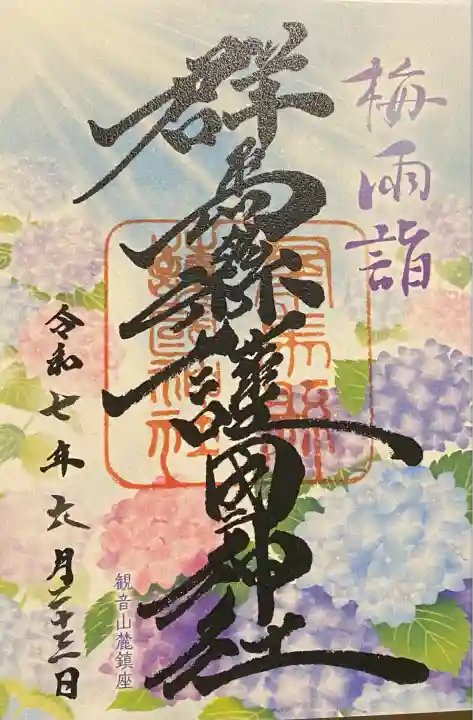 梅雨詣
群馬縣護國神社
群馬縣護國神社
令和七年六月二十三日
観音山麓鎮座